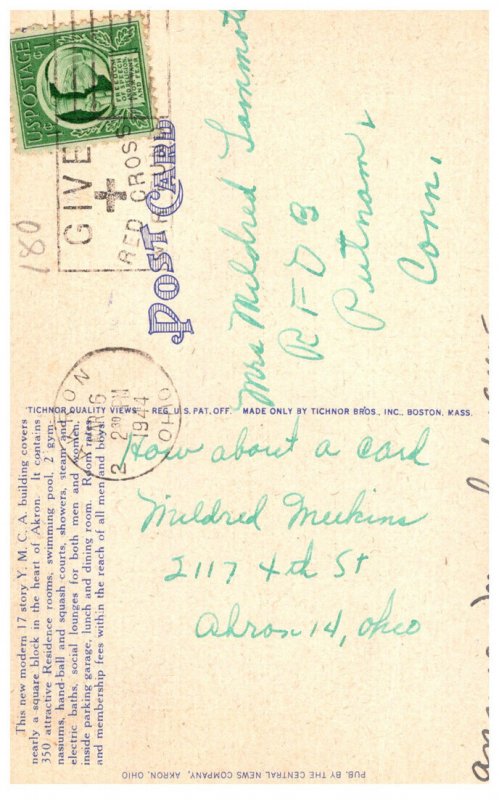 US POSTAGE 1¢
FREEDOM
OF SPEECH
AND RELIGION
FROM WANT
AND FEAR
GIVE
RED CROSS
WAR FUND
180
POST CARD
AKRON
2 30 PM
1944
OHIO
2
Mrs Mildred Lammot
R F D 3
Putnam,
Conn.
TICHNOR QUALITY VIEWS REG. U. S. PAT. OFF. MADE ONLY BY TICHNOR BROS., INC., BOSTON, MASS.
This new modern 17 story Y. M. C. A. building covers
nearly a square block in the heart of Akron. It contains
350 attractive Residence rooms, swimming pool, 2 gym-
nasiums, hand-ball and squash courts, showers, steam and
electric baths, social lounges for both men and women,
inside parking garage, lunch and dining room. Room rates
and membership fees within the reach of all men and boys.
How about a card
Mildred Meekins
2117 4th St
Akron 14, Ohio
PUB. BY THE CENTRAL NEWS COMPANY, AKRON, OHIO